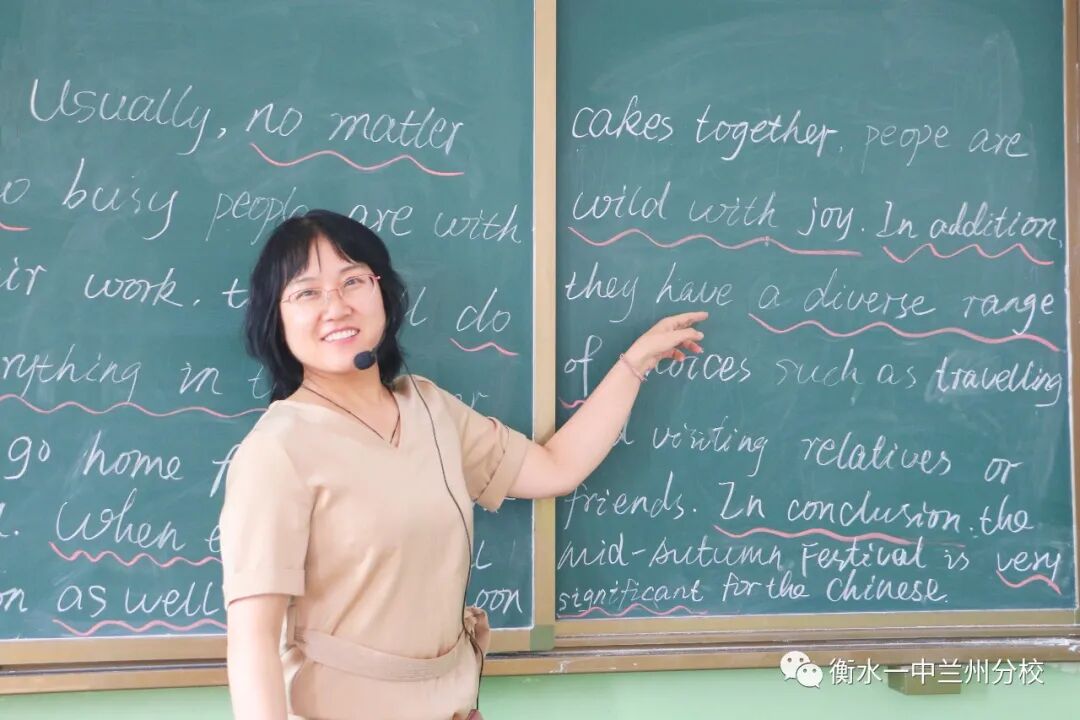 Usually, no matter
busy people are with
work.
do
in
go home
When
as well oon
cakes together, peope are
wild with joy. In addition,
they have a diverse range
of choices such as travelling
visiting relatives or
friends. In conclusion, the
mid-autumn Festival is very
significant for the Chinese.
衡水一中兰州分校